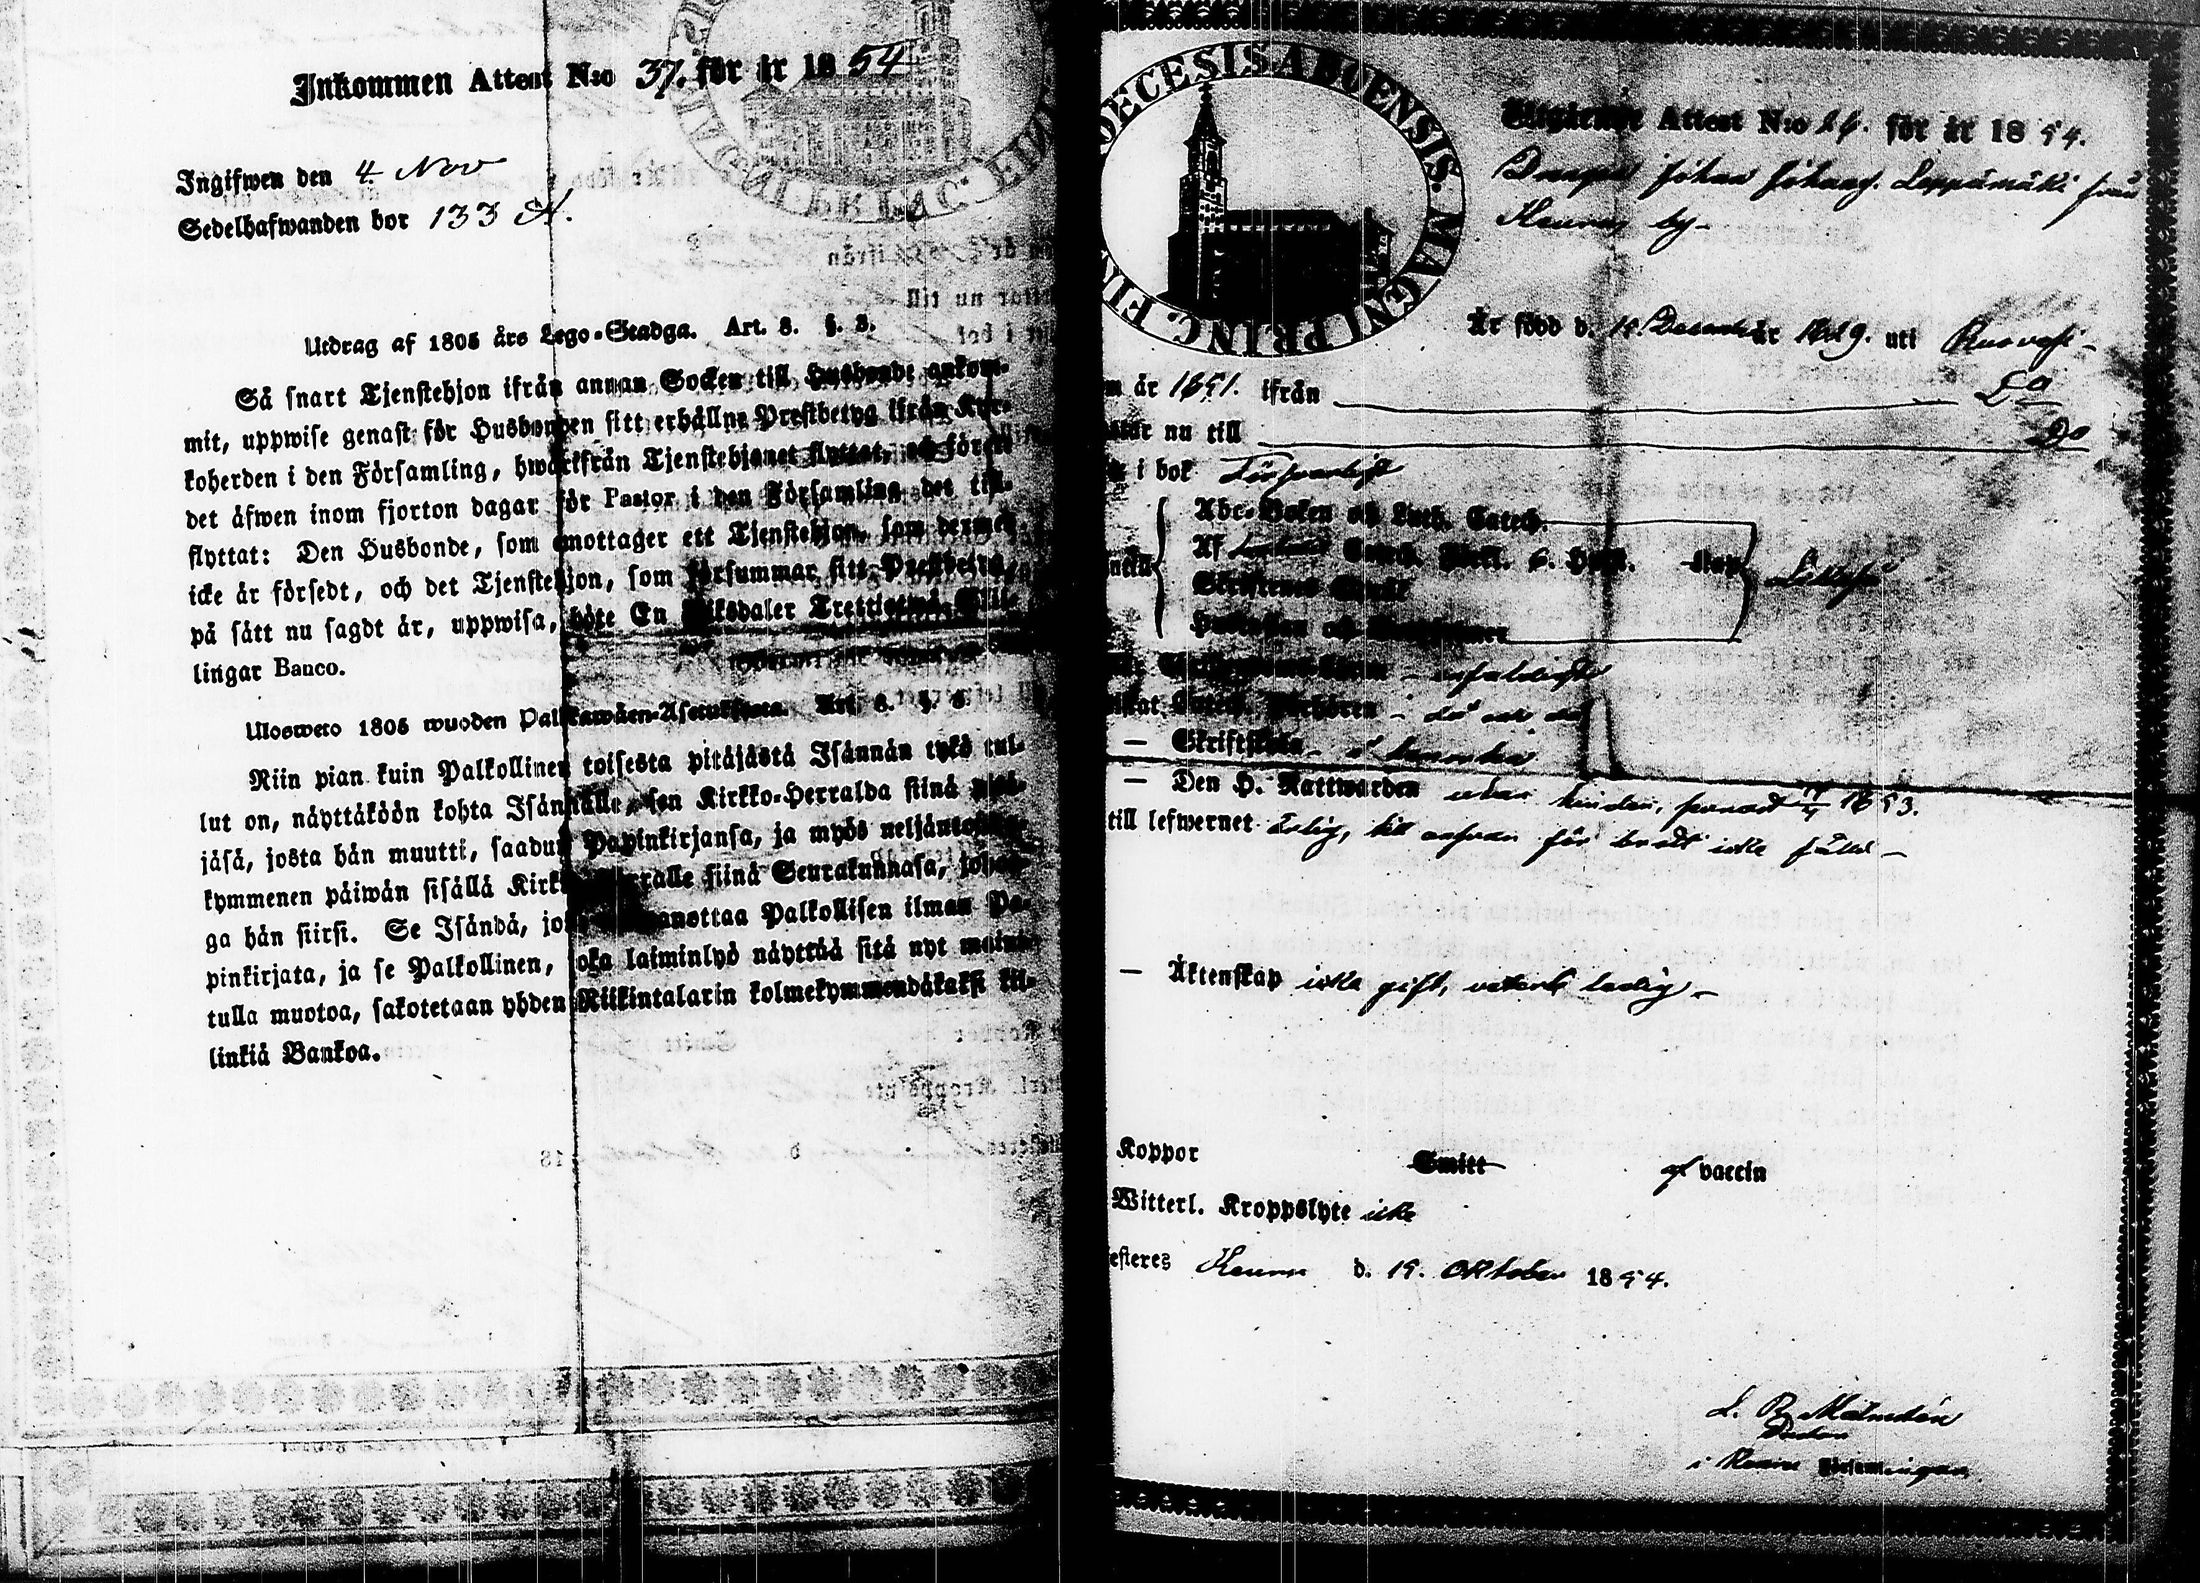 Inkommen Attest N:o 37. för år 1854
Ingifwen den 4 Nov
Sedelhafwanden bor 133 A.
Utdrag af 1805 års Lego-Stadga. Art. 8. §. 3.
Så snart Tjenstehjon ifrån annan Socken till Husbonde ankom-
mit, uppwise genast för Husbonden sitt erhållne Prestbetyg ifrån Kyr-
koherden i den Församling, hwarifrån Tjenstehjonet flyttat, och förete
det äfwen inom fjorton dagar för Pastor i den Församling det till-
flyttat: Den Husbonde, som emottager ett Tjenstehjon, som dermed
icke är försedt, och det Tjenstehjon, som försummar sitt Prestbetyg,
på sätt nu sagdt är, uppwisa, böte En Riksdaler Trettiotwå Skil-
lingar Banco.
Ulosweto 1805 wuoden Palkawäen-Asetuksesta. Art. 8. §. 3.
Niin pian kuin Palkollinen toisesta pitäjästä Isännän tykö tul-
lut on, näyttäköön kohta Isännälle, sen Kirkko-Herralda siinä pitä-
jäsä, josta hän muutti, saadun Papinkirjansa, ja myös neljäntoista-
kymmenen päiwän sisällä Kirkko-Herralle siinä Seurakunnasa, johon-
ga hän siirsi. Se Isändä, joka wastaanottaa Palkollisen ilman Pa-
pinkirjata, ja se Palkollinen, joka laiminlyö näyttää sitä nyt mainit-
tulla muotoa, sakotetaan yhden Riikintalarin kolmekymmendäkaksi kil-
linkiä Bankoa.
DIOECESIS ABOENSIS. MAGNI PRINC. FIN
Utgående Attest N:o 24. för år 1854.
Drengen Johan Johanss. Leppämäki från
Keuru by
Är född d. 15 December år 1829. uti Ruovesi
år 1851. ifrån Do
nu till Do
i bok Försvarligt
Abc-Boken och Luth. Catech.
Af Catech. Förkl. 6. Huft.
Skriftenes Språk
Catech. Förhören
— Skriftskola
— Den H. Nattwarden 1853.
till lefwernet ärlig, till ansvar för brott icke fälld
— Äktenskap icke gift, veterl. ledig
Koppor Smitt af vaccin
Witterl. Kroppslyte icke
esteres Keuru d. 15. Oktober 1854.
Pastor
i Keuru Församlingen